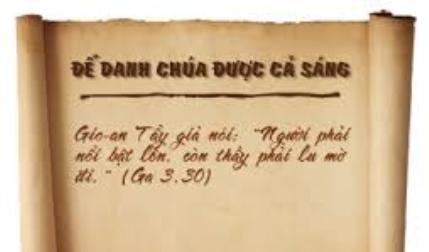 ĐỂ DANH CHÚA ĐƯỢC CẢ SÁNG
Gio-an Tẩy giả nói: "Người phải
nổi bật lên, còn thầy phải lu mờ
đi." (Ga 3,30)